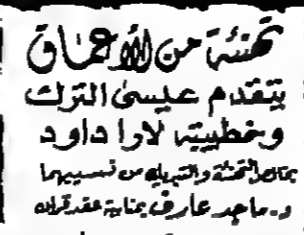 تهنئة من الأعماق
يتقدم عيسى الترك
وخطيبته لارا داود
بخالص التهنئة والتبريك من نسيبهما
د. ماجد عارف بمناسبة عقد قرانه